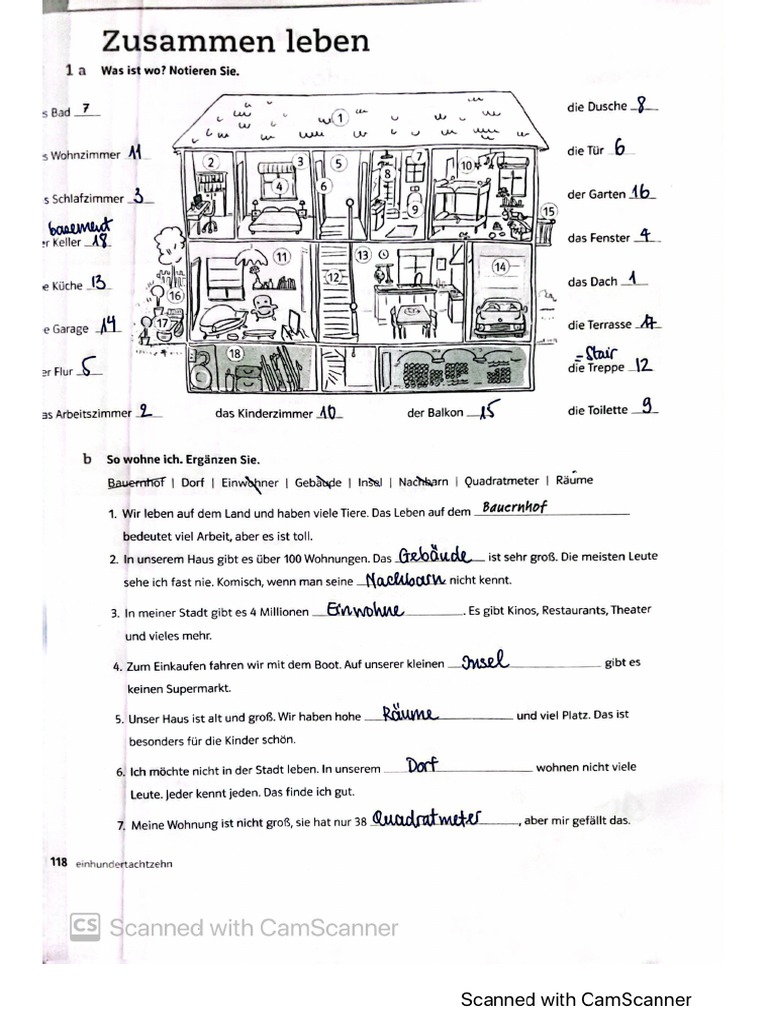 Zusammen leben
1 a Was ist wo? Notieren Sie.
s Bad 7
die Dusche 8
s Wohnzimmer 11
die Tür 6
s Schlafzimmer 3
der Garten 16
basement
er Keller 18
das Fenster 4
e Küche 13
das Dach 1
e Garage 14
die Terrasse
= Stair
er Flur 5
die Treppe 12
as Arbeitszimmer 2
das Kinderzimmer 10
der Balkon 15
die Toilette 9
1
2
3
4
5
6
7
8
9
10
11
12
13
14
15
16
17
18
b So wohne ich. Ergänzen Sie.
Bauernhof | Dorf | Einwohner | Gebäude | Insel | Nachbarn | Quadratmeter | Räume
1. Wir leben auf dem Land und haben viele Tiere. Das Leben auf dem Bauernhof
bedeutet viel Arbeit, aber es ist toll.
2. In unserem Haus gibt es über 100 Wohnungen. Das Gebäude ist sehr groß. Die meisten Leute
sehe ich fast nie. Komisch, wenn man seine Nachbarn nicht kennt.
3. In meiner Stadt gibt es 4 Millionen Einwohne. Es gibt Kinos, Restaurants, Theater
und vieles mehr.
4. Zum Einkaufen fahren wir mit dem Boot. Auf unserer kleinen Insel gibt es
keinen Supermarkt.
5. Unser Haus ist alt und groß. Wir haben hohe Räume und viel Platz. Das ist
besonders für die Kinder schön.
6. Ich möchte nicht in der Stadt leben. In unserem Dorf wohnen nicht viele
Leute. Jeder kennt jeden. Das finde ich gut.
7. Meine Wohnung ist nicht groß, sie hat nur 38 Quadratmeter, aber mir gefällt das.
118 einhundertachtzehn
CS Scanned with CamScanner
Scanned with CamScanner